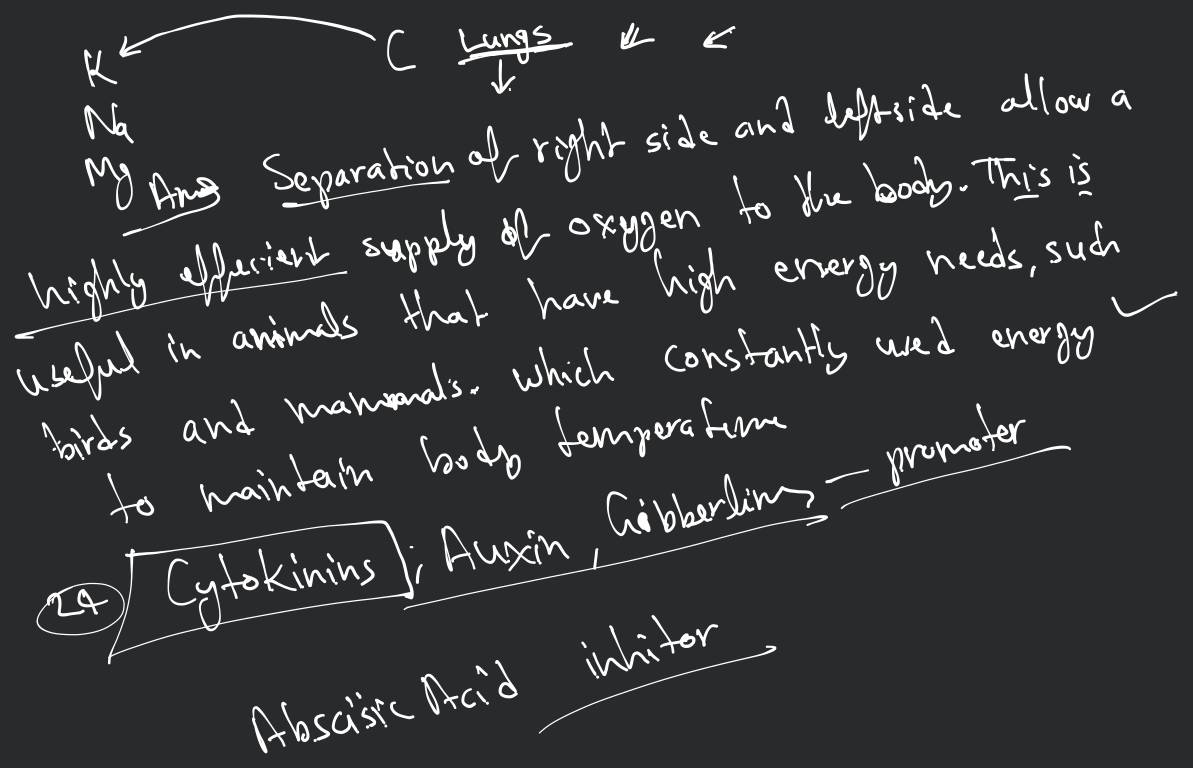 K C Lungs
Na
Mg Ans Separation of right side and leftside allow a
highly effecient supply of oxygen to the body. This is
useful in animals that have high energy needs, such
birds and mammals. which constantly used energy
to maintain body temperature
24 Cytokinins ; Auxin , Gibberlins - promoter
Abscisic Acid inhitor